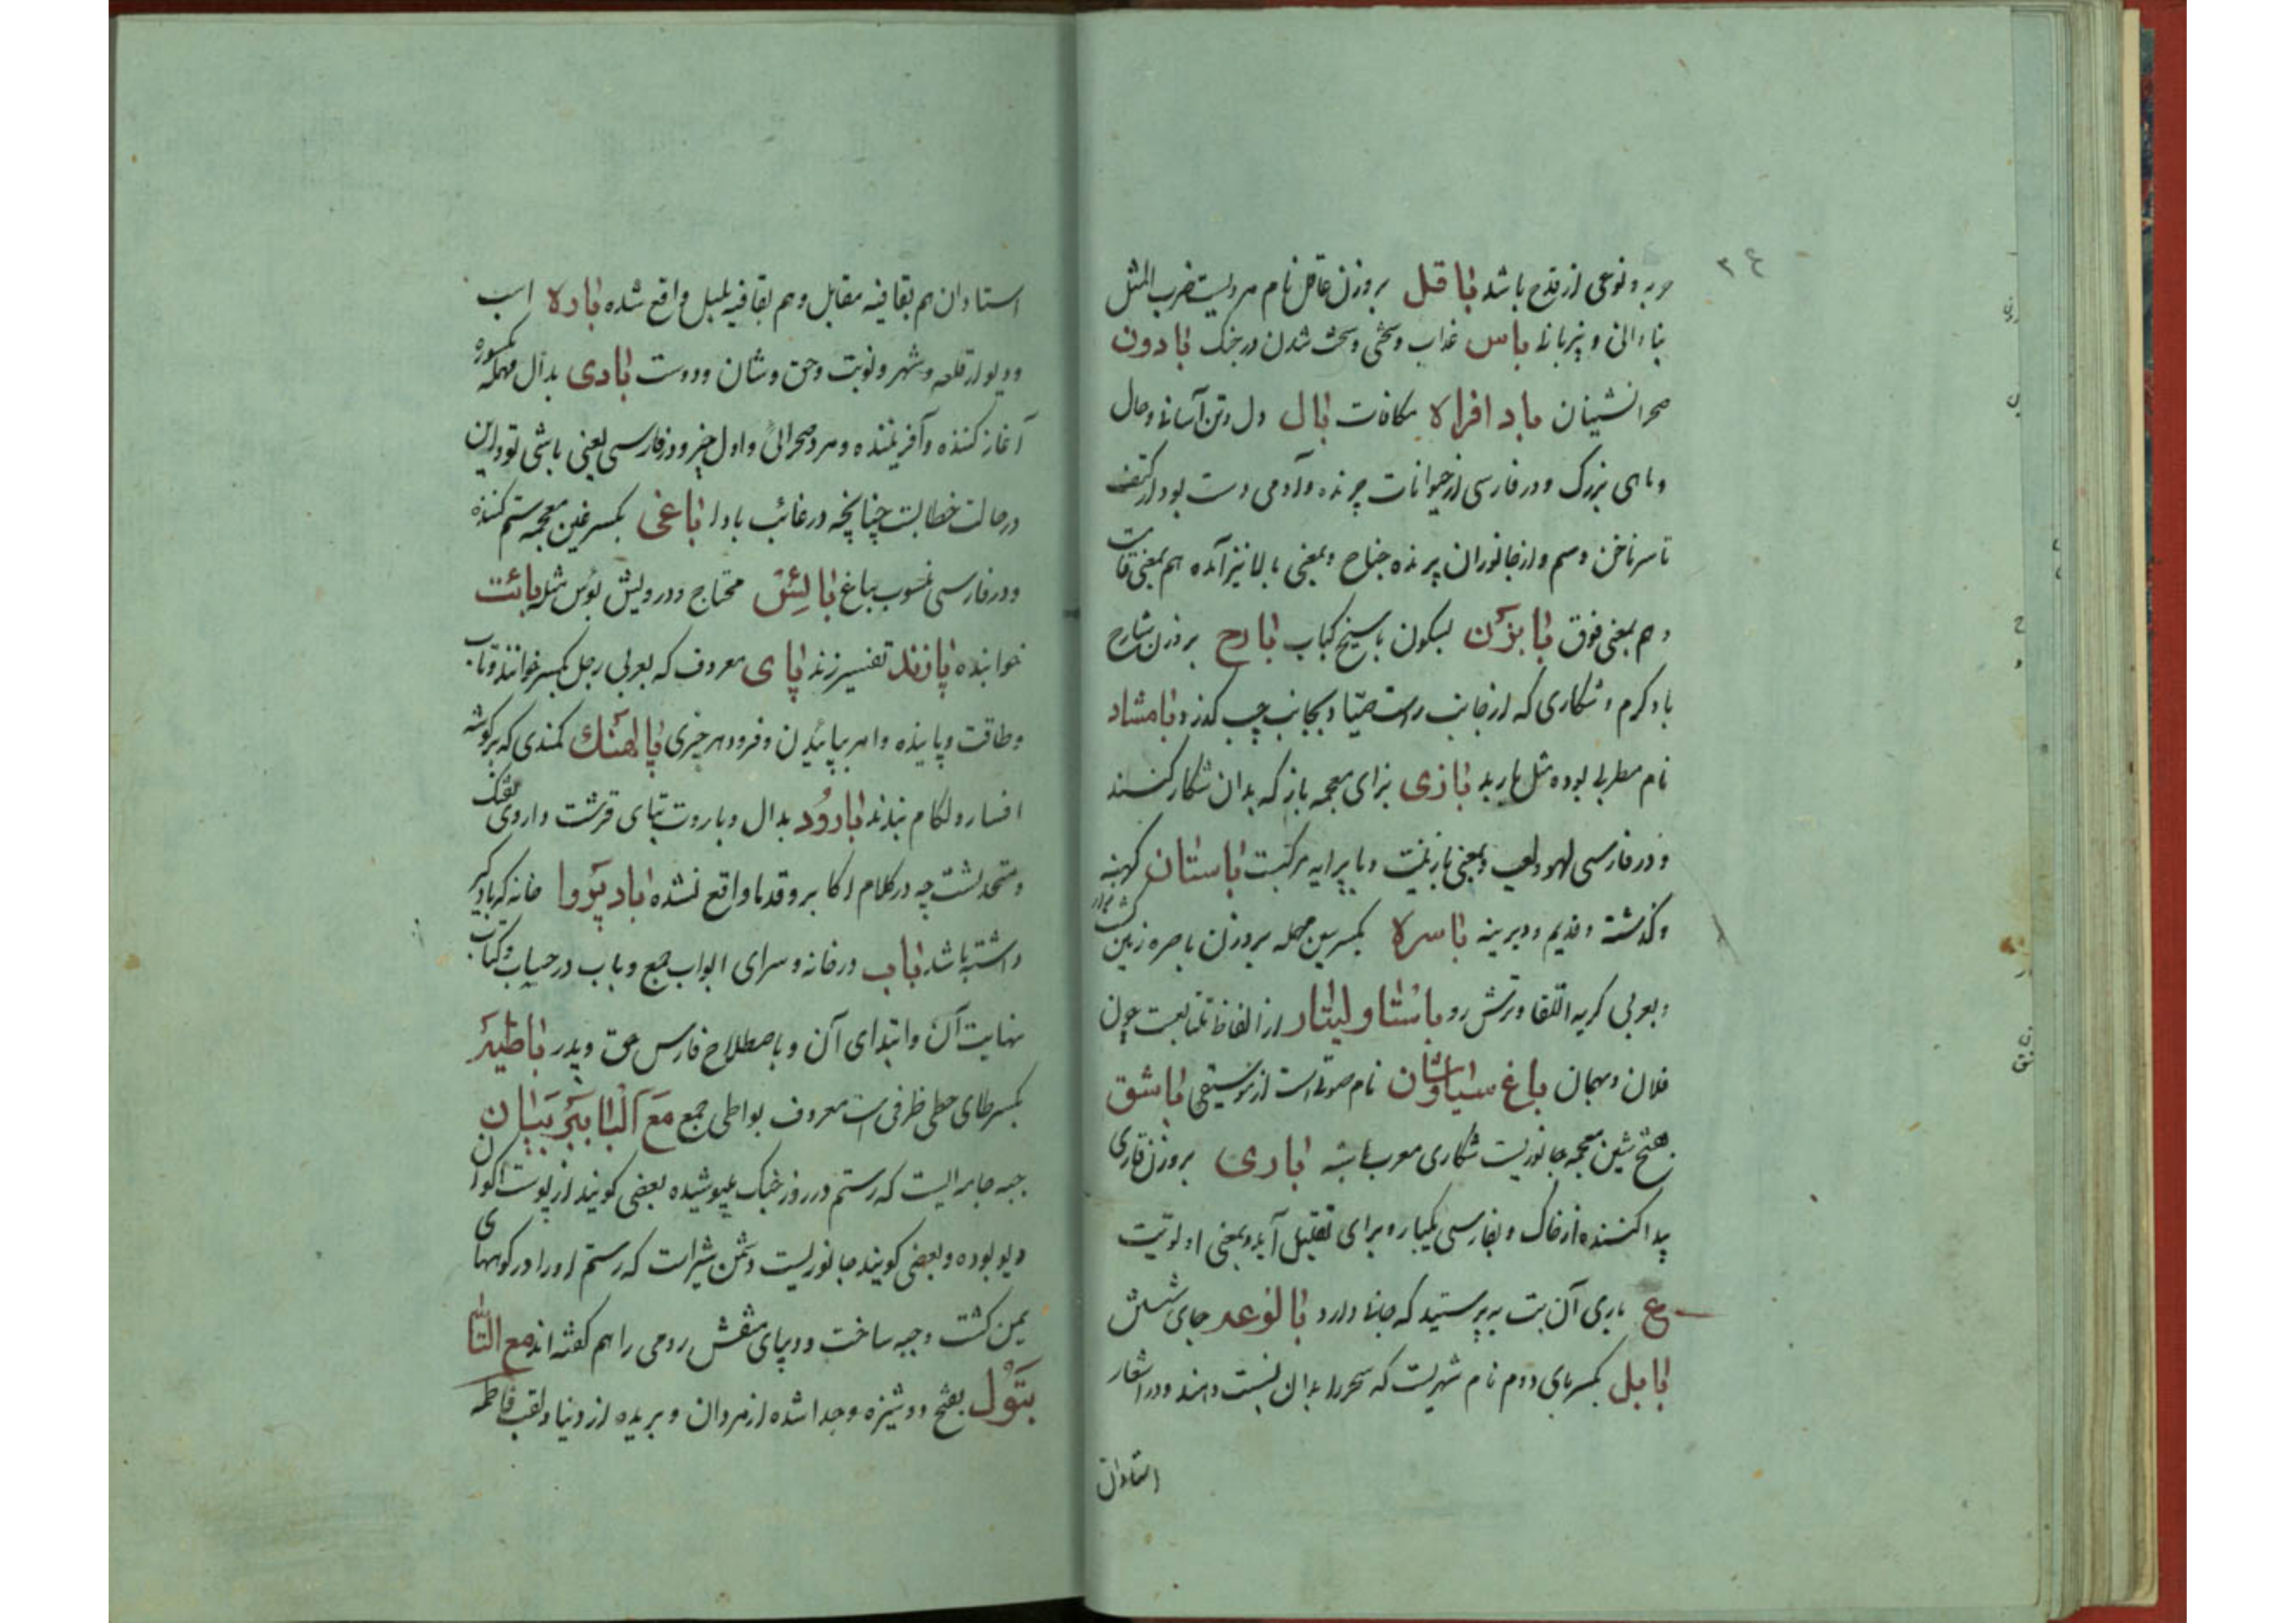 ۳۴
حربه و نوعی از قدح باشد باقل بروزن عاقل نام مردیست ضرب المثل
بنادانی و بیزبانی باس عذاب و سختی و سخت شدن در جنک بادون
صحرانشینان باد افراه مکافات بال دل و تن آسانی و حال
و ماهی بزرک و در فارسی از حیوانات چرنده و آدمی دست بود از کتف
تا سر ناخن و سم و از جانوران پرنده جناح و بمعنی بالا نیز آمده هم بمعنی قامت
و هم بمعنی فوق بابزن بسکون با سیخ کباب بارح بروزن شارح
باد کرم و شکاری که از جانب راست صیاد بجانب چپ کذرد بامشاد
نام مطربی بوده مثل باربد بازی بزای معجمه باز که بدان شکار کنند
و در فارسی لهو و لعب و بمعنی باز نیست و با پرایه مرکبست باستان کهنه
و کذشته و قدیم و دیرینه باسره بکسر سین مهمله بروزن باصره زمین کشت زار
و بعربی کریه اللقا و ترش رو باستار و لیتار از الفاظ تتابعست چون
فلان و بهمان باغ سیاوشان نام صوتی است از موسیقی باشق
بفتح شین معجمه جانوریست شکاری معرب باشه باری بروزن قاری
پیدا کننده از خاک و بفارسی یکباره و برای تقلیل آید و بمعنی اولویت
ع باری آن بت بپرستید که جانی دارد بالوعه جای شستن
بابل بکسر بای دوم نام شهریست که سحر را بدان نسبت دهند و در اشعار
استادان
استادان هم بقافیه مقابل و هم بقافیه بلبل واقع شده باره اسب
و دیوار قلعه و شهر و نوبت و حق و شان و دوست بادی بدال مهمله مکسوره
آغاز کننده و آفریننده و مرد صحرائی و اول چیز و در فارسی یعنی باشی تو و این
در حالت خطابست چنانچه در غائب بادا باغی بکسر غین معجمه ستم کننده
و در فارسی منسوب بباغ بائس محتاج و درویش بؤس مثله بائت
خوابنده پازند تفسیر زند پای معروف که بعربی رجل بکسر خوانند و تاب
و طاقت و پاینده و امر بپائیدن و فرود هر چیزی پالهنک کمندی که بر کوشه
افسار و لکام بندند بارود بدال و باروت بتای قرشت داروی تفنک
و متحد نشت چه در کلام اکابر و قدما واقع نشده بادپروا خانه که بادکیر
داشته باشد باب در خانه و سرای ابواب جمع و باب در حساب و کتاب
نهایت آن و ابتدای آن و باصطلاح فارس حق و پدر باطیه
بکسر طای حطی ظرفی است معروف بواطی جمع مع البا ببر بیان
جبه جابرالیست که رستم در روز جنک میپوشیده بعضی کویند از پوست اکوان
دیو بوده و بعضی کویند جانوریست دشمن شیر است که رستم او را در کوههای
یمن کشت و جبه ساخت و دیبای منقش رومی را هم کفته اند مع التا
بتول بفتح دوشیزه و جدا شده از مردان و بریده از دنیا و لقب فاطمه